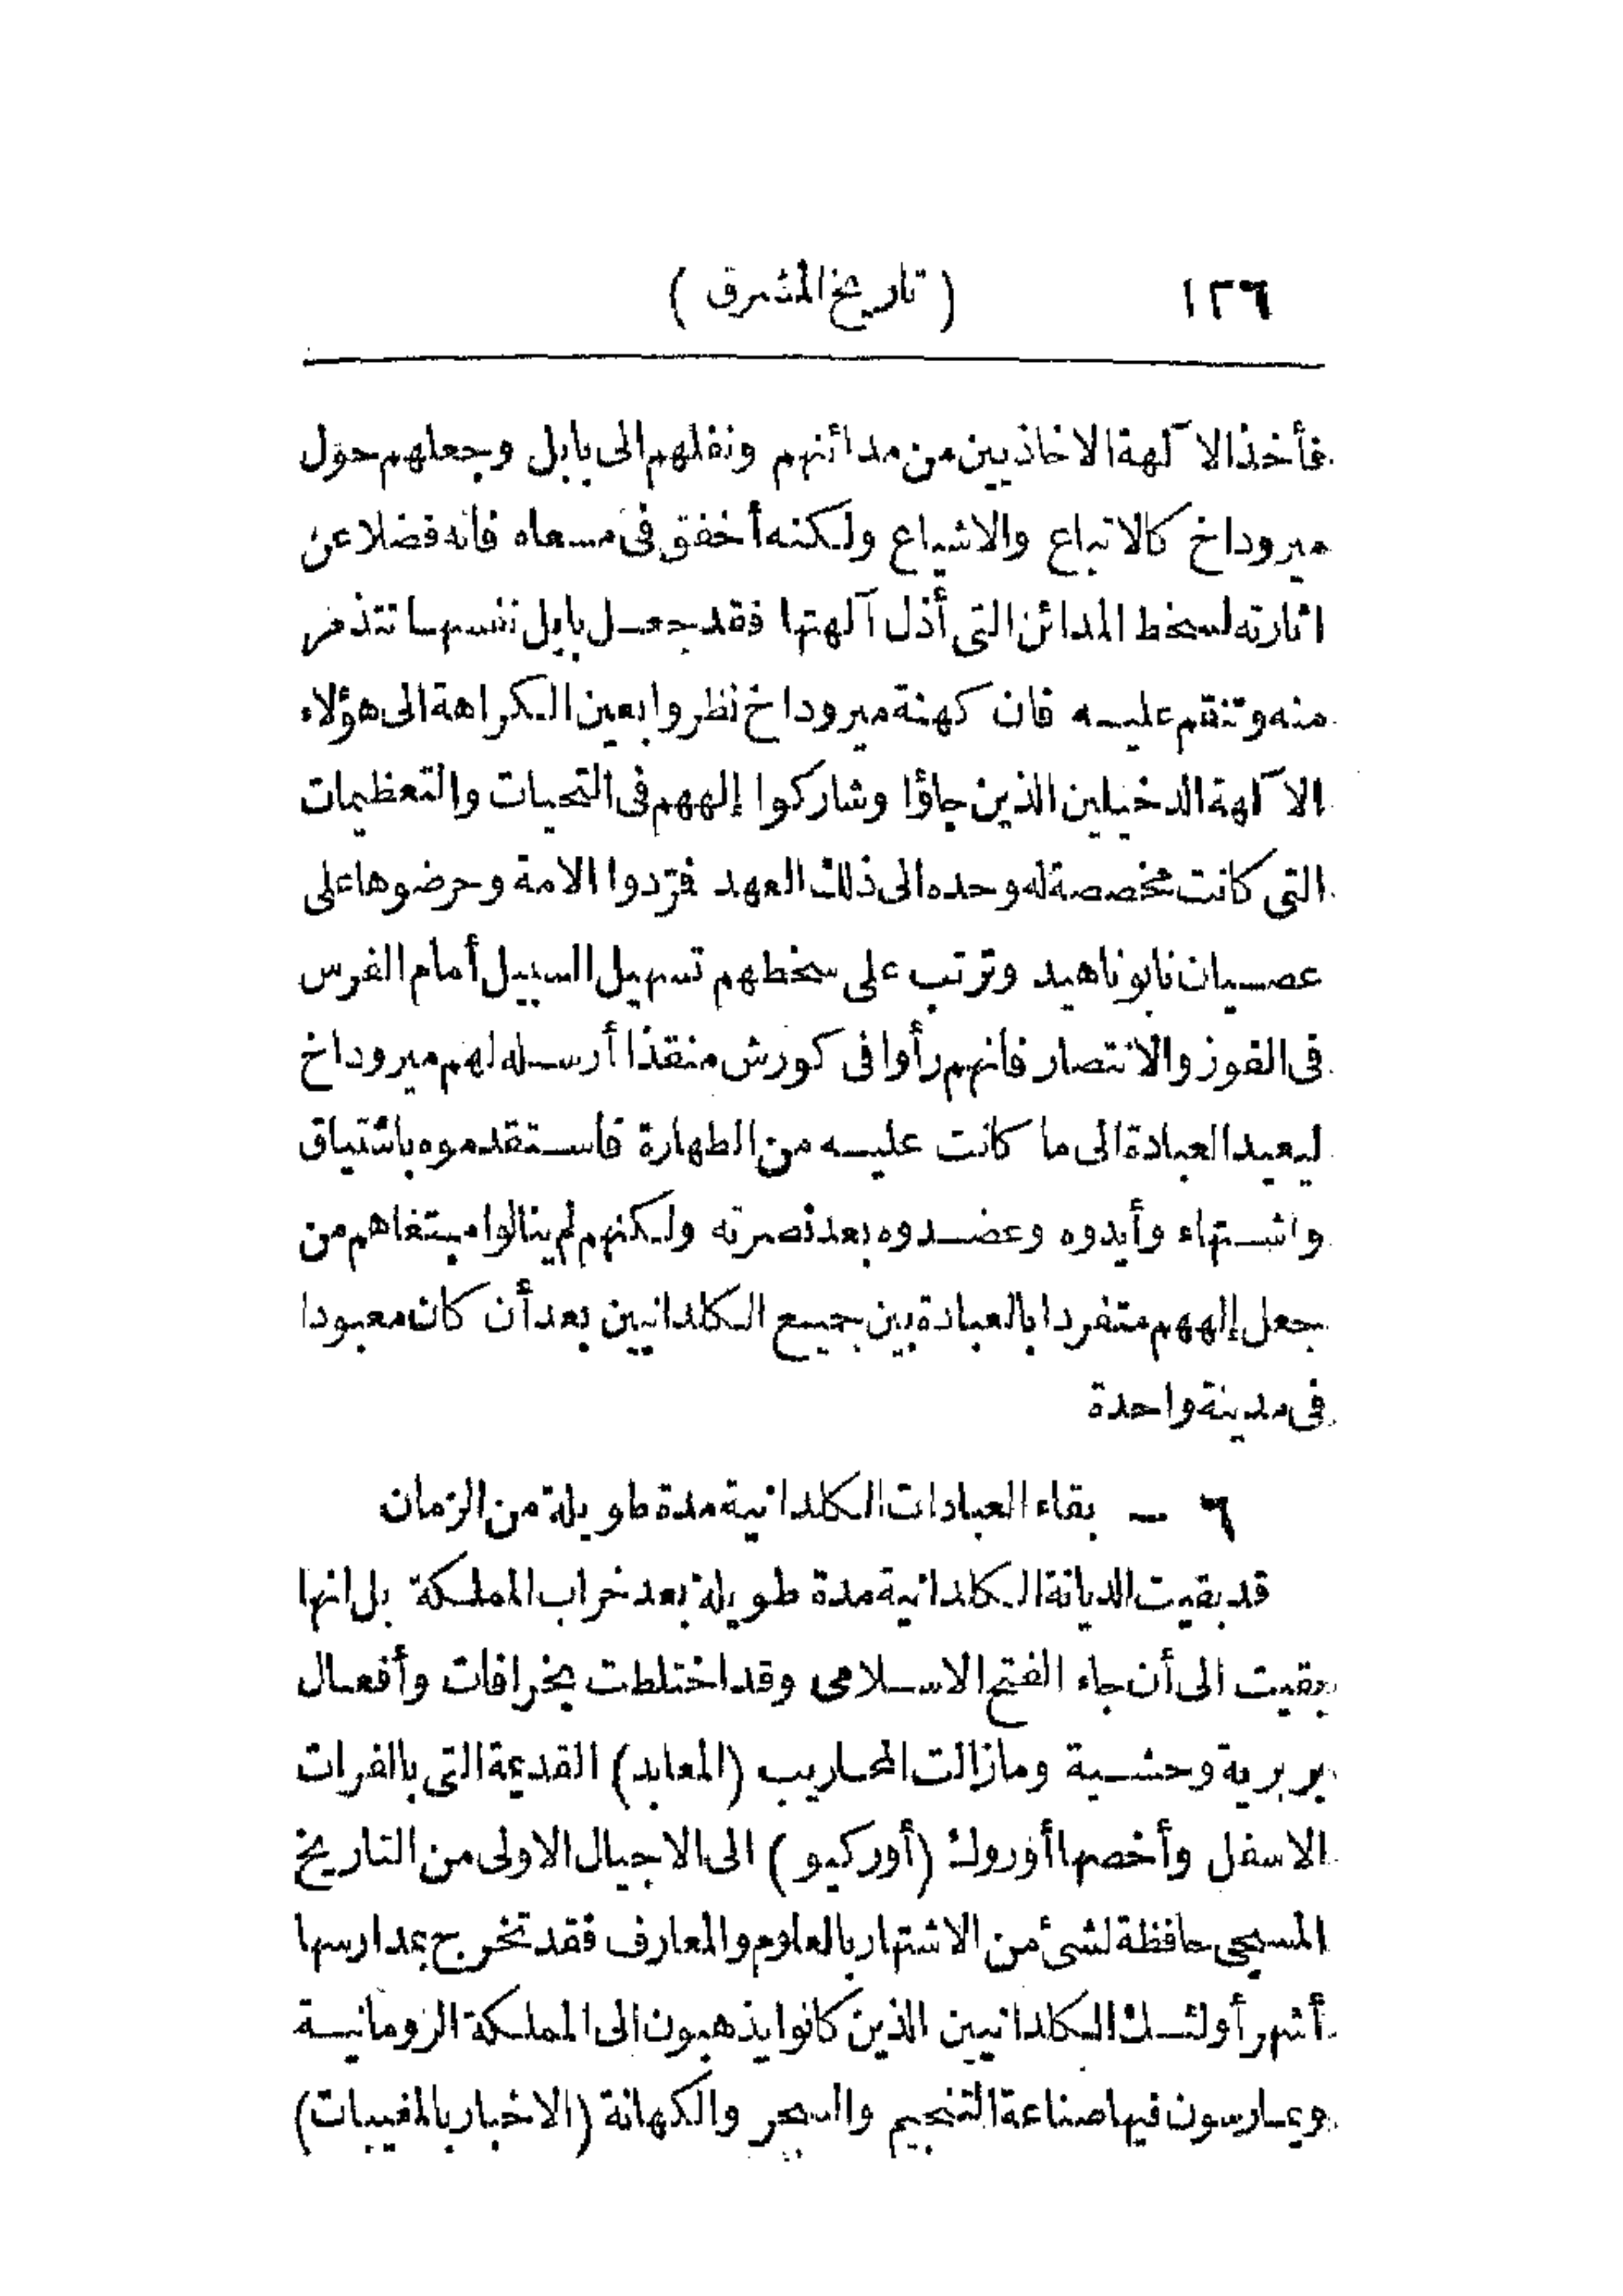 ١٢٦ ( تاريخ المشرق )
فأخذ الآلهة الاخاذيين من مدائنهم ونقلهم الى بابل وجعلهم حول
ميروداخ كالاتباع والاشياع ولكنه أخفق فى مسعاه فانه فضلا عن
اثارته لسخط المدائن التى أذل آلهتها فقد جعل بابل نفسها تتذمر
منه وتنقم عليه فان كهنة ميروداخ نظروا بعين الكراهة الى هؤلاء
الآلهة الدخيلين الذين جاؤا وشاركوا إلههم فى التحيات والتعظيمات
التى كانت مخصصة له وحده الى ذلك العهد فرّدوا الامة وحرضوها على
عصيان نابوناهيد وترتب على سخطهم تسهيل السبيل أمام الفرس
فى الفوز والانتصار فانهم رأوا فى كورش منقذا أرسله لهم ميروداخ
ليعيد العبادة الى ما كانت عليه من الطهارة فاستقدموه باشتياق
واشتهاء وأيدوه وعضدوه بعد نصرته ولكنهم لم ينالوا مبتغاهم من
جعل إلههم متفردا بالعبادة بين جميع الكلدانيين بعد أن كان معبودا
فى مدينة واحدة
٦ — بقاء العبادات الكلدانية مدة طويلة من الزمان
قد بقيت الديانة الكلدانية مدة طويلة بعد خراب المملكة بل انها
بقيت الى أن جاء الفتح الاسلامى وقد اختلطت بخرافات وأفعال
بربرية وحشية وما زالت المحاريب (المعابد) القديمة التى بالفرات
الاسفل وأخصها أوروك (أوركيو ) الى الاجيال الاولى من التاريخ
المسيحى حافظة لشئ من الاشتهار بالعلوم والمعارف فقد تخرج بمدارسها
أشهر أولئك الكلدانيين الذين كانوا يذهبون الى المملكة الرومانية
ويمارسون فيها صناعة التنجيم والسحر والكهانة (الاخبار بالمغيبات)